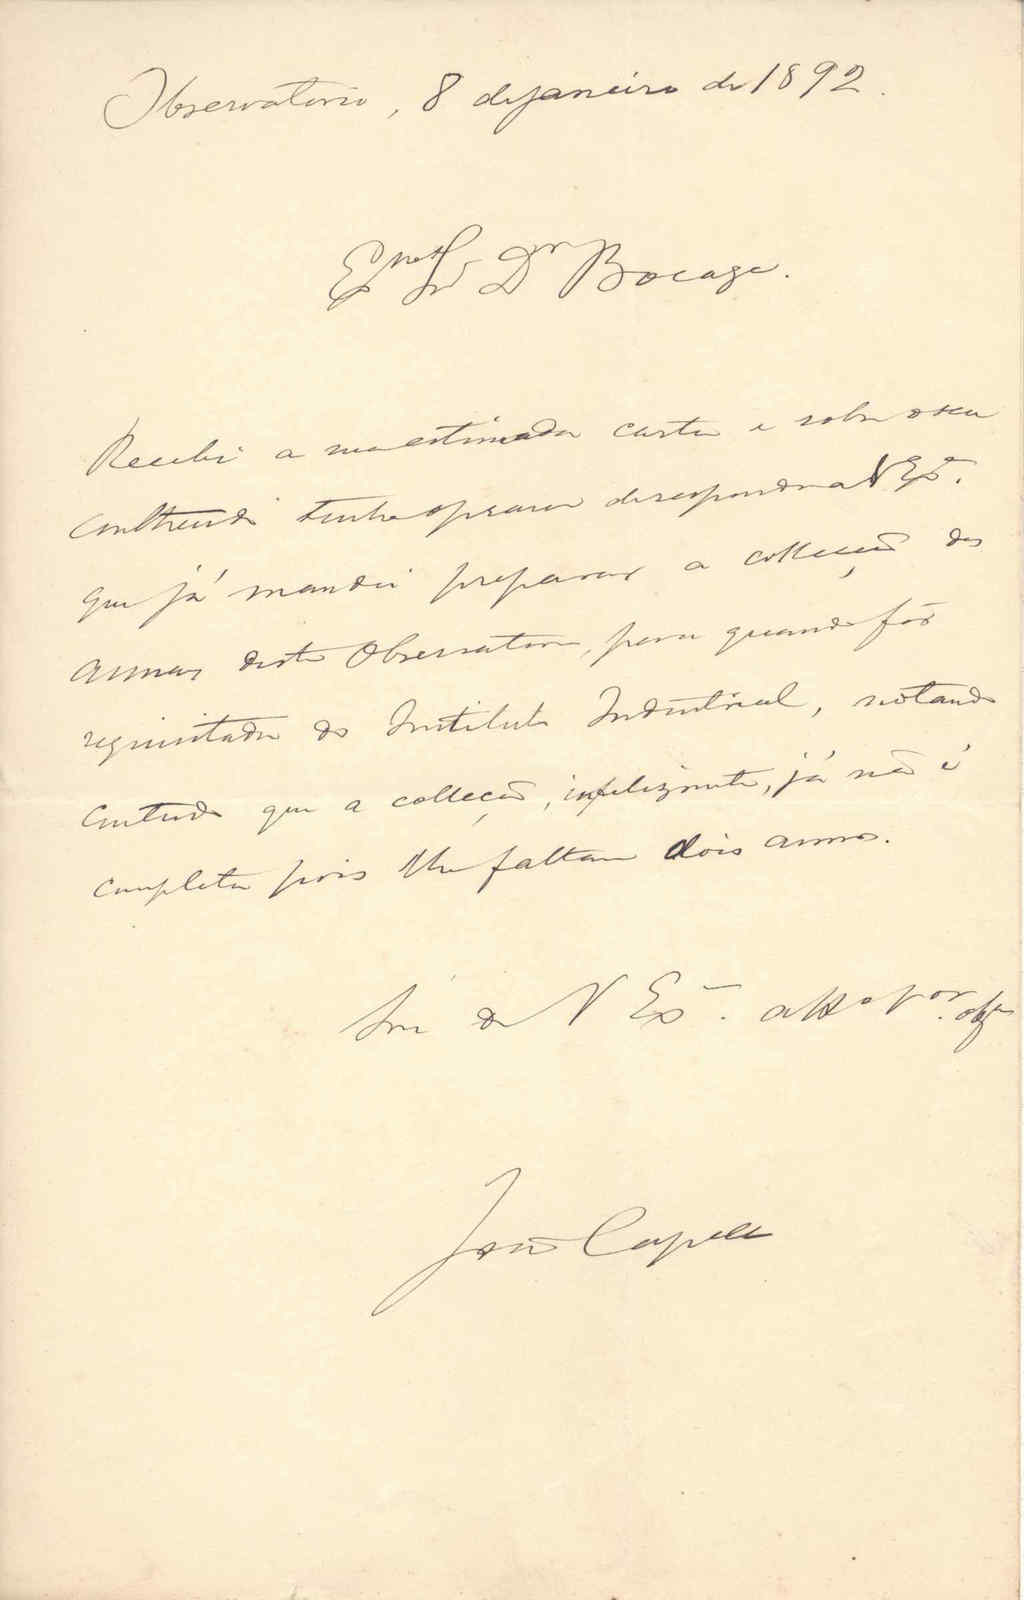 Observatorio, 8 de janeiro de 1892.
Exmo Sr Dr Bocage.
Recebi a sua estimada carta e sobre o seu
contheudo tenho o prazer de responder a V Exª.
que já mandei preparar a collecção dos
annaes deste Observatorio, para quando fôr
requisitada do Instituto Industrial, notando
contudo que a collecção, infelizmente, já não é
completa pois lhe faltam dois annos.
Sou de V Exª. attº vor. obgº
João Capello